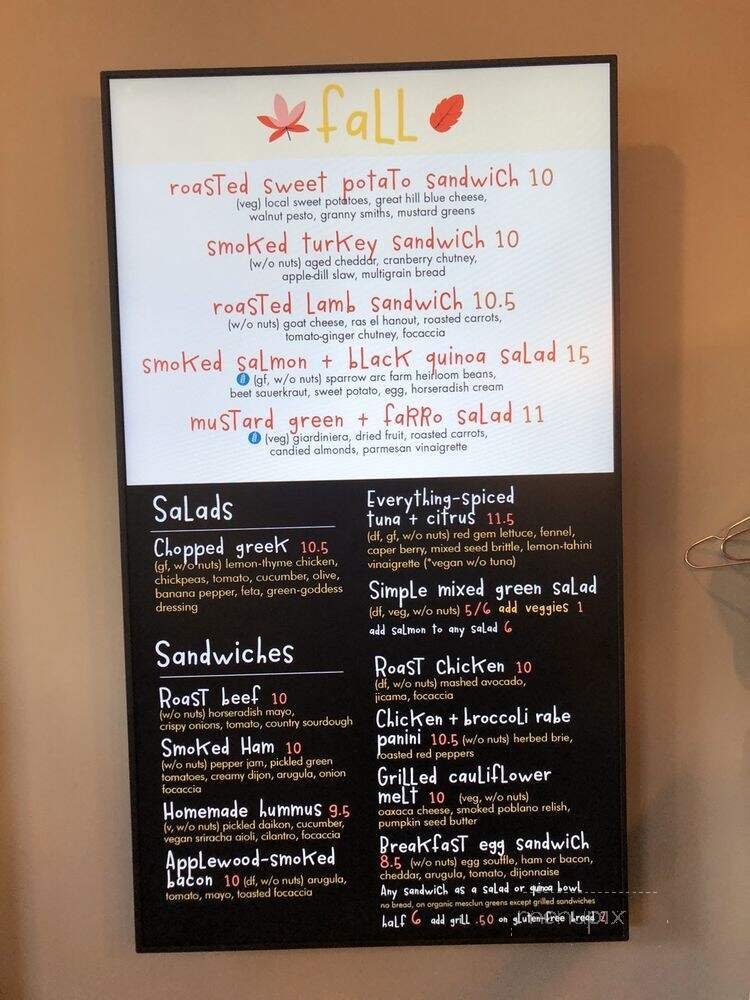 fall
roasted sweet potato sandwich 10
(veg) local sweet potatoes, great hill blue cheese,
walnut pesto, granny smiths, mustard greens
smoked turkey sandwich 10
(w/o nuts) aged cheddar, cranberry chutney,
apple-dill slaw, multigrain bread
roasted lamb sandwich 10.5
(w/o nuts) goat cheese, ras el hanout, roasted carrots,
tomato-ginger chutney, focaccia
smoked salmon + black quinoa salad 15
(gf, w/o nuts) sparrow arc farm heirloom beans,
beet sauerkraut, sweet potato, egg, horseradish cream
mustard green + farro salad 11
(veg) giardiniera, dried fruit, roasted carrots,
candied almonds, parmesan vinaigrette
Salads
Chopped greek 10.5
(gf, w/o nuts) lemon-thyme chicken,
chickpeas, tomato, cucumber, olive,
banana pepper, feta, green-goddess
dressing
Everything-spiced
tuna + citrus 11.5
(df, gf, w/o nuts) red gem lettuce, fennel,
caper berry, mixed seed brittle, lemon-tahini
vinaigrette (*vegan w/o tuna)
Simple mixed green salad
(df, veg, w/o nuts) 5/6 add veggies 1
add salmon to any salad 6
Sandwiches
Roast beef 10
(w/o nuts) horseradish mayo,
crispy onions, tomato, country sourdough
Smoked Ham 10
(w/o nuts) pepper jam, pickled green
tomatoes, creamy dijon, arugula, onion
focaccia
Homemade hummus 9.5
(v, w/o nuts) pickled daikon, cucumber,
vegan sriracha aioli, cilantro, focaccia
Applewood-smoked
bacon 10 (df, w/o nuts) arugula,
tomato, mayo, toasted focaccia
Roast Chicken 10
(df, w/o nuts) mashed avocado,
jicama, focaccia
Chicken + broccoli rabe
panini 10.5 (w/o nuts) herbed brie,
roasted red peppers
Grilled cauliflower
melt 10 (veg, w/o nuts)
oaxaca cheese, smoked poblano relish,
pumpkin seed butter
Breakfast egg sandwich
8.5 (w/o nuts) egg souffle, ham or bacon,
cheddar, arugula, tomato, dijonnaise
Any sandwich as a salad or quinoa bowl
no bread, on organic mesclun greens except grilled sandwiches
half 6 add grill .50 on gluten-free bread 2
menupix